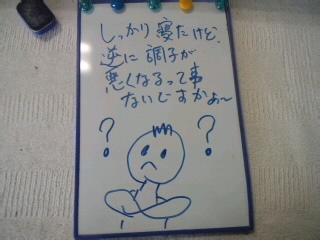 しっかり寝たけど、
逆に調子が
悪くなるって事
ないですかぁ〜
? ?